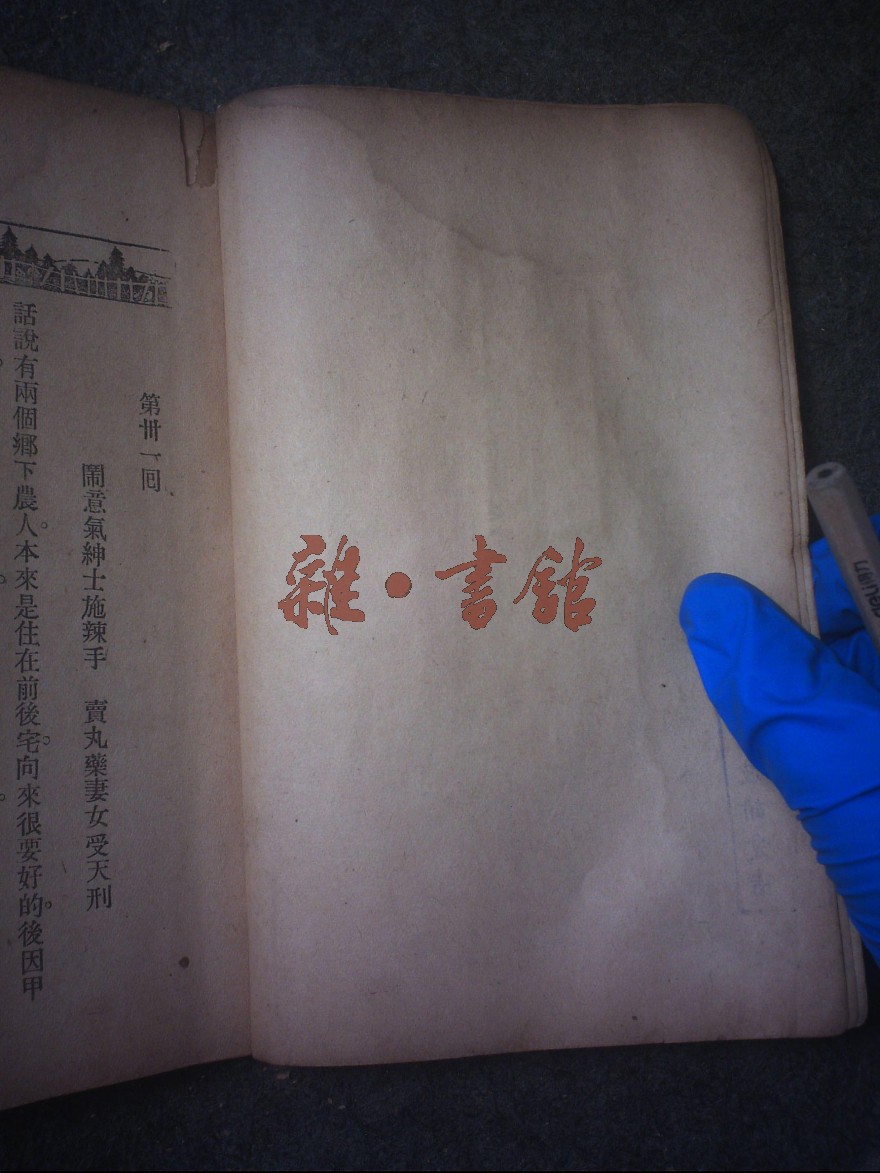 雜·書館
第卅一回
鬧意氣紳士施辣手 賣丸藥妻女受天刑
話說有兩個鄉下農人。本來是住在前後宅。向來很要好的。後因甲